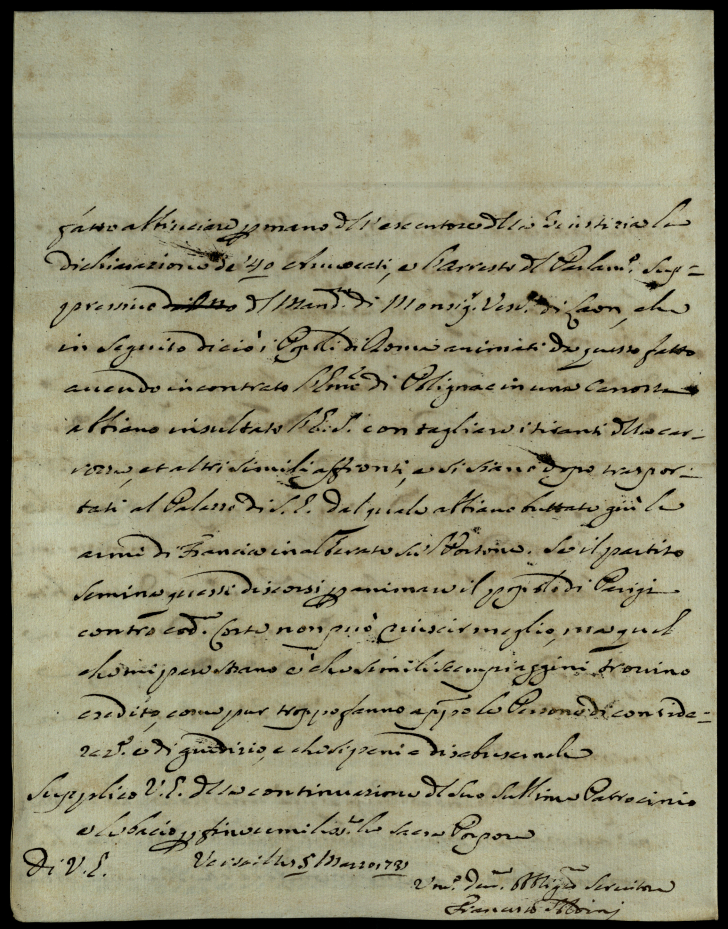 fatto abbruciare p mano dell'esecutore della Giustizia la
dichiarazione de' 40 Avvocati, e l'Arresto del Parlam.º sup-
pressivo del Mand.º di Monsig.r Vesc.º di Laon, che
in seguito di ciò i Popoli di Roma animati da questo fatto
avendo incontrato l'Emo di Polignac in una carozza
abbiano insultato l'E.S. con tagliare i tiranti della car-
rozza, et altri simili affronti, e si siano dopo traspor-
tati al Palazzo di S.E. dal quale abbiano buttate giù le
armi di Francia inalberate su'l Portone. Se il partito
semina questi discorsi p animare il popolo di Parigi
contro cod.ª Corte non può riuscir meglio, ma quel
che mi pare strano è che simili scempiaggini trovino
credito, come pur troppo fanno app.º le Persone di conside-
raz.e e di giudizio, e che si peni a disabusarnele
Supplico V.E. della continuazione del suo sublime Patrocinio
e le bacio p fine umiliss.te la sacra Porpora
Di V.E. Versailles 5 Marzo 1731
Um.º Dev.º Obblig.º Servitore
Francesco